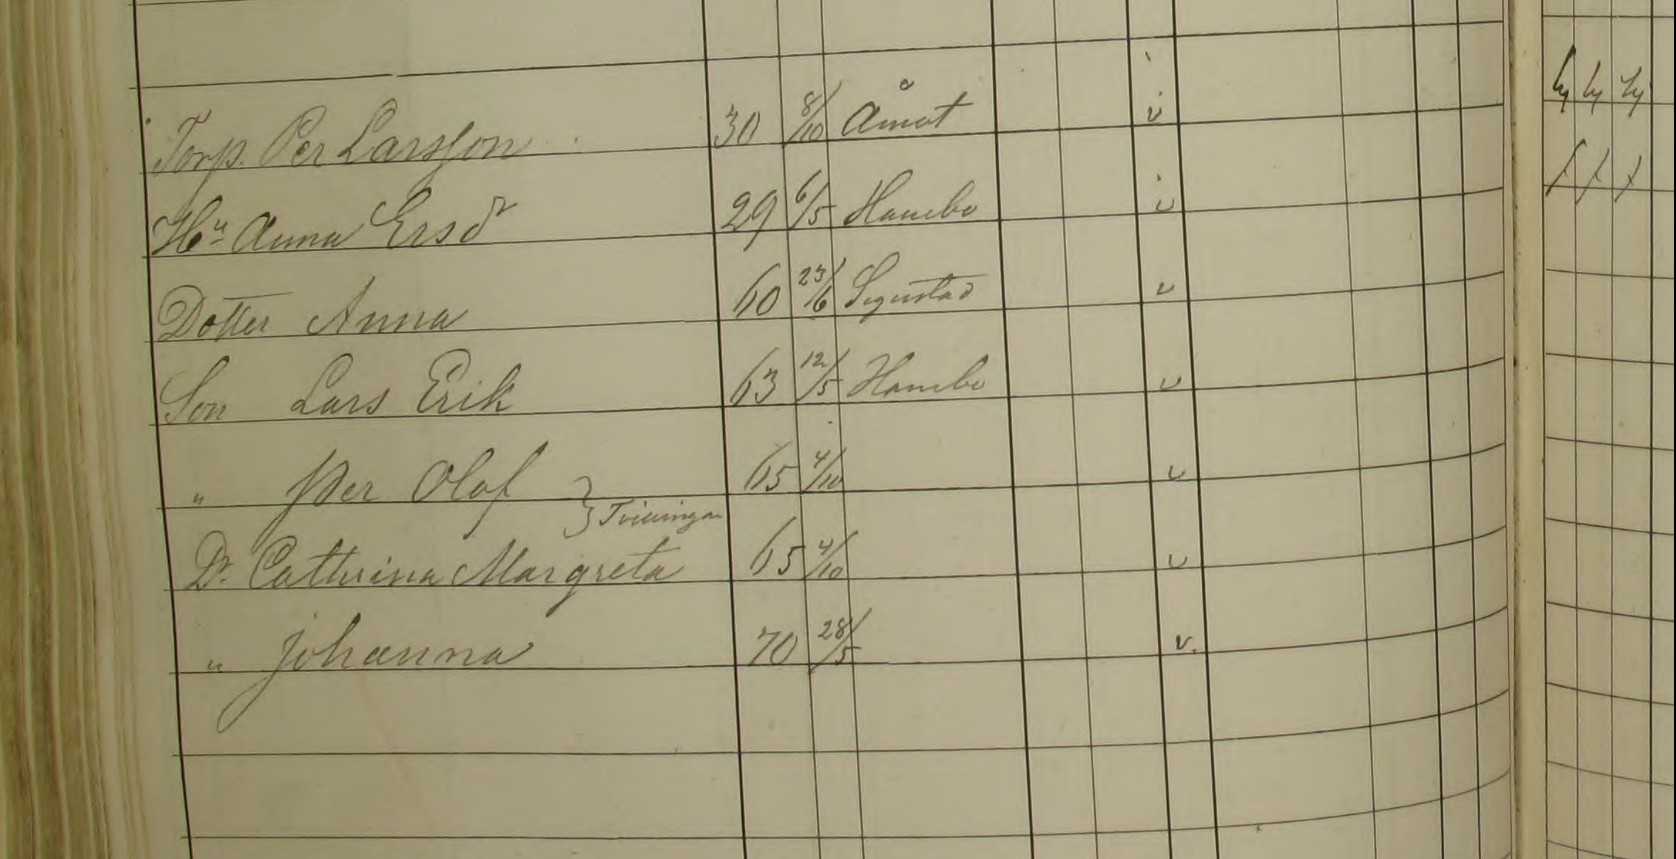 Torp. Per Larsson 30 8/10 Åmot v
Hu Anna Ersdr 29 6/5 Hanebo v
Dotter Anna 60 23/6 Segerstad v
Son Lars Erik 63 12/5 Hanebo v
" Per Olof 65 4/10 v
} Tvillingar
Dr. Cathrina Margreta 65 4/10 v
" Johanna 70 28/5 v.